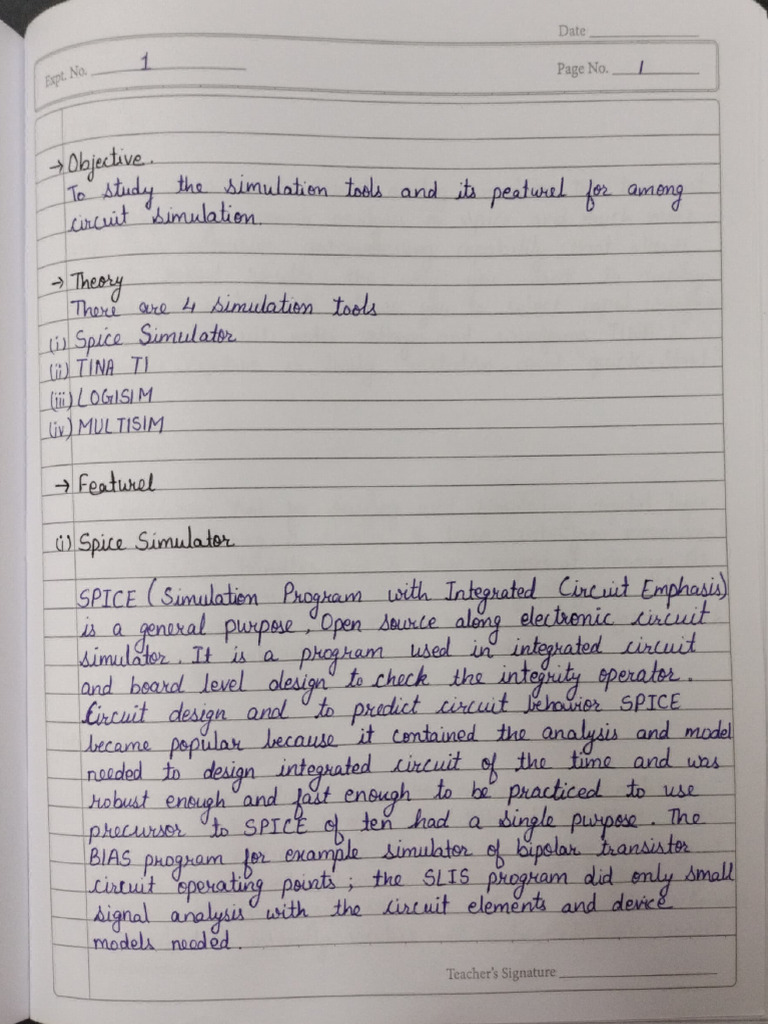 Date
Expt. No. 1
Page No. 1
→ Objective.
To study the simulation tools and its peaturel for among
circuit simulation.
→ Theory
There are 4 simulation tools
(i) Spice Simulator
(ii) TINA TI
(iii) LOGISIM
(iv) MULTISIM
→ Featurel
(i) Spice Simulator
SPICE (Simulation Program with Integrated Circuit Emphasis)
is a general purpose, Open source along electronic circuit
simulator. It is a program used in integrated circuit
and board level design to check the integrity operator.
Circuit design and to predict circuit behavior SPICE
became popular because it contained the analysis and model
needed to design integrated circuit of the time and was
robust enough and fast enough to be practiced to use
precursor to SPICE of ten had a single purpose. The
BIAS program for example simulator of bipolar transistor
circuit operating points; the SLIS program did only small
signal analysis with the circuit elements and device
models needed.
Teacher's Signature